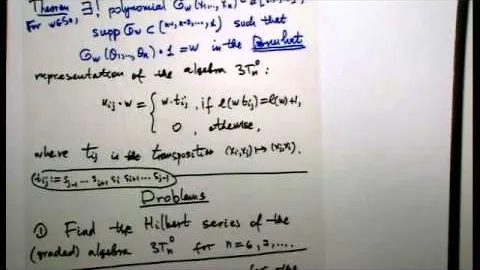 Theorem ∃! polynomial G_w(x_1,..., x_n)
For w∈S_n, supp G_w ⊂ (n-1, n-2, ..., 1) such that
G_w(θ_1,...,θ_n) • 1 = w in the Bruhat
representation of the algebra 3T_n^0 :
u_ij • w = { w.t_ij , if ℓ(w t_ij) = ℓ(w)+1,
0 , otherwise,
where t_ij is the transposition (x_i,x_j) ↦ (x_j,x_i).
t_ij := s_{j-1} ... s_{i+1} s_i s_{i+1} ... s_{j-1}
Problems
① Find the Hilbert series of the
(graded) algebra 3T_n^0 for n=6,7,....
the